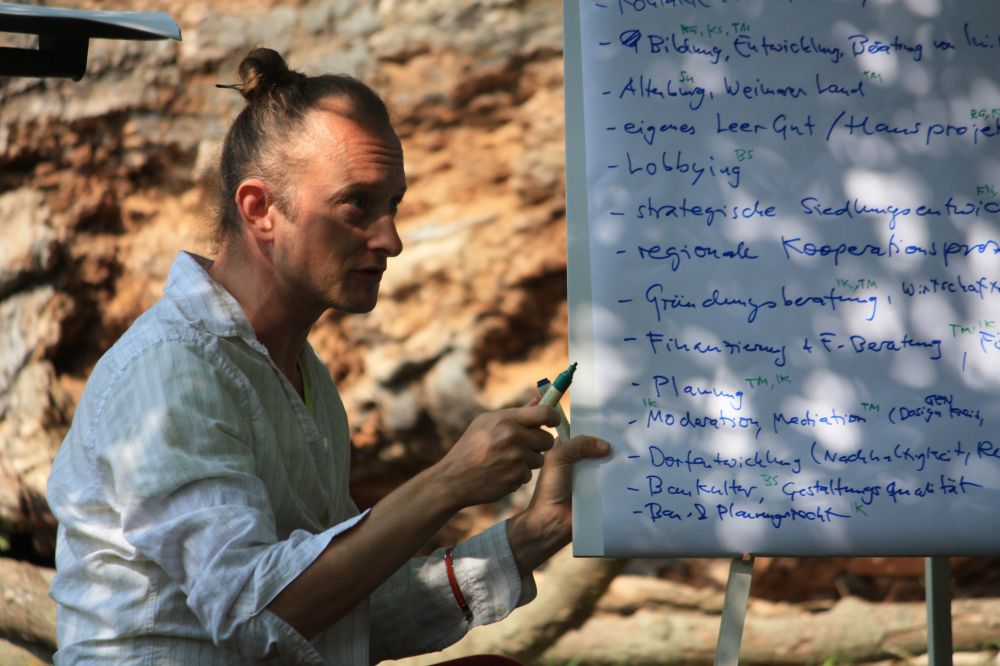 RG, KS, TM
- Bildung, Entwicklung, Beratung von
SH TM
- Altenburg, Weimarer Land
- eigenes LeerGut / Hausprojek
BS
- Lobbying
FN
- strategische Siedlungsentwic
- regionale Kooperationsproz
IK, TM
- Gründungsberatung, Wirtschafts
TM, IK
- Finanzierung & F-Beratung, Fö
TM, IK
- Planung
IK TM
- Moderation, Mediation (Design
GEN
- Dorfentwicklung (Nachhaltigkeit, Re
BS
- Baukultur, Gestaltungsqualität
IK
- Bau- & Planungsrecht